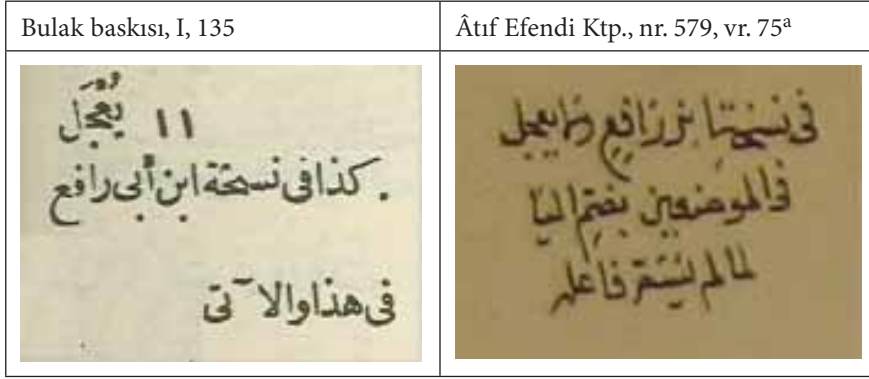 Bulak baskısı, I, 135
Âtıf Efendi Ktp., nr. 579, vr. 75ᵃ
١١ يُعَجَّل
كذا فى نسخة ابن أبى رافع .
فى هذا والآتى
فى نسخة ابن رافع
فى الموضعين بضم اليا
لما لم فاعله